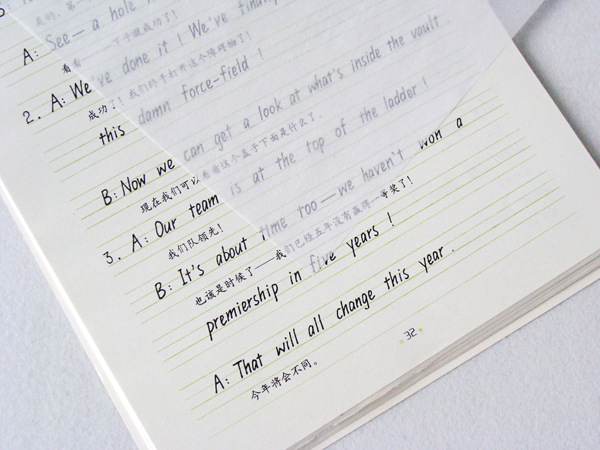 是的,第一
A: See — a hole i
看看——一下子就成功了!
2. A: We've done it! We've finally
成功了!我们终于打开这个障碍物了!
this damn force-field!
B: Now we can get a look at what's inside the vault
现在我们可以看看这个盖子下面是什么了。
3. A: Our team is at the top of the ladder!
我们队领先!
B: It's about time too — we haven't won a
也该是时候了——我们已经五年没有赢得一等奖了!
premiership in five years!
A: That will all change this year.
今年将会不同。
32